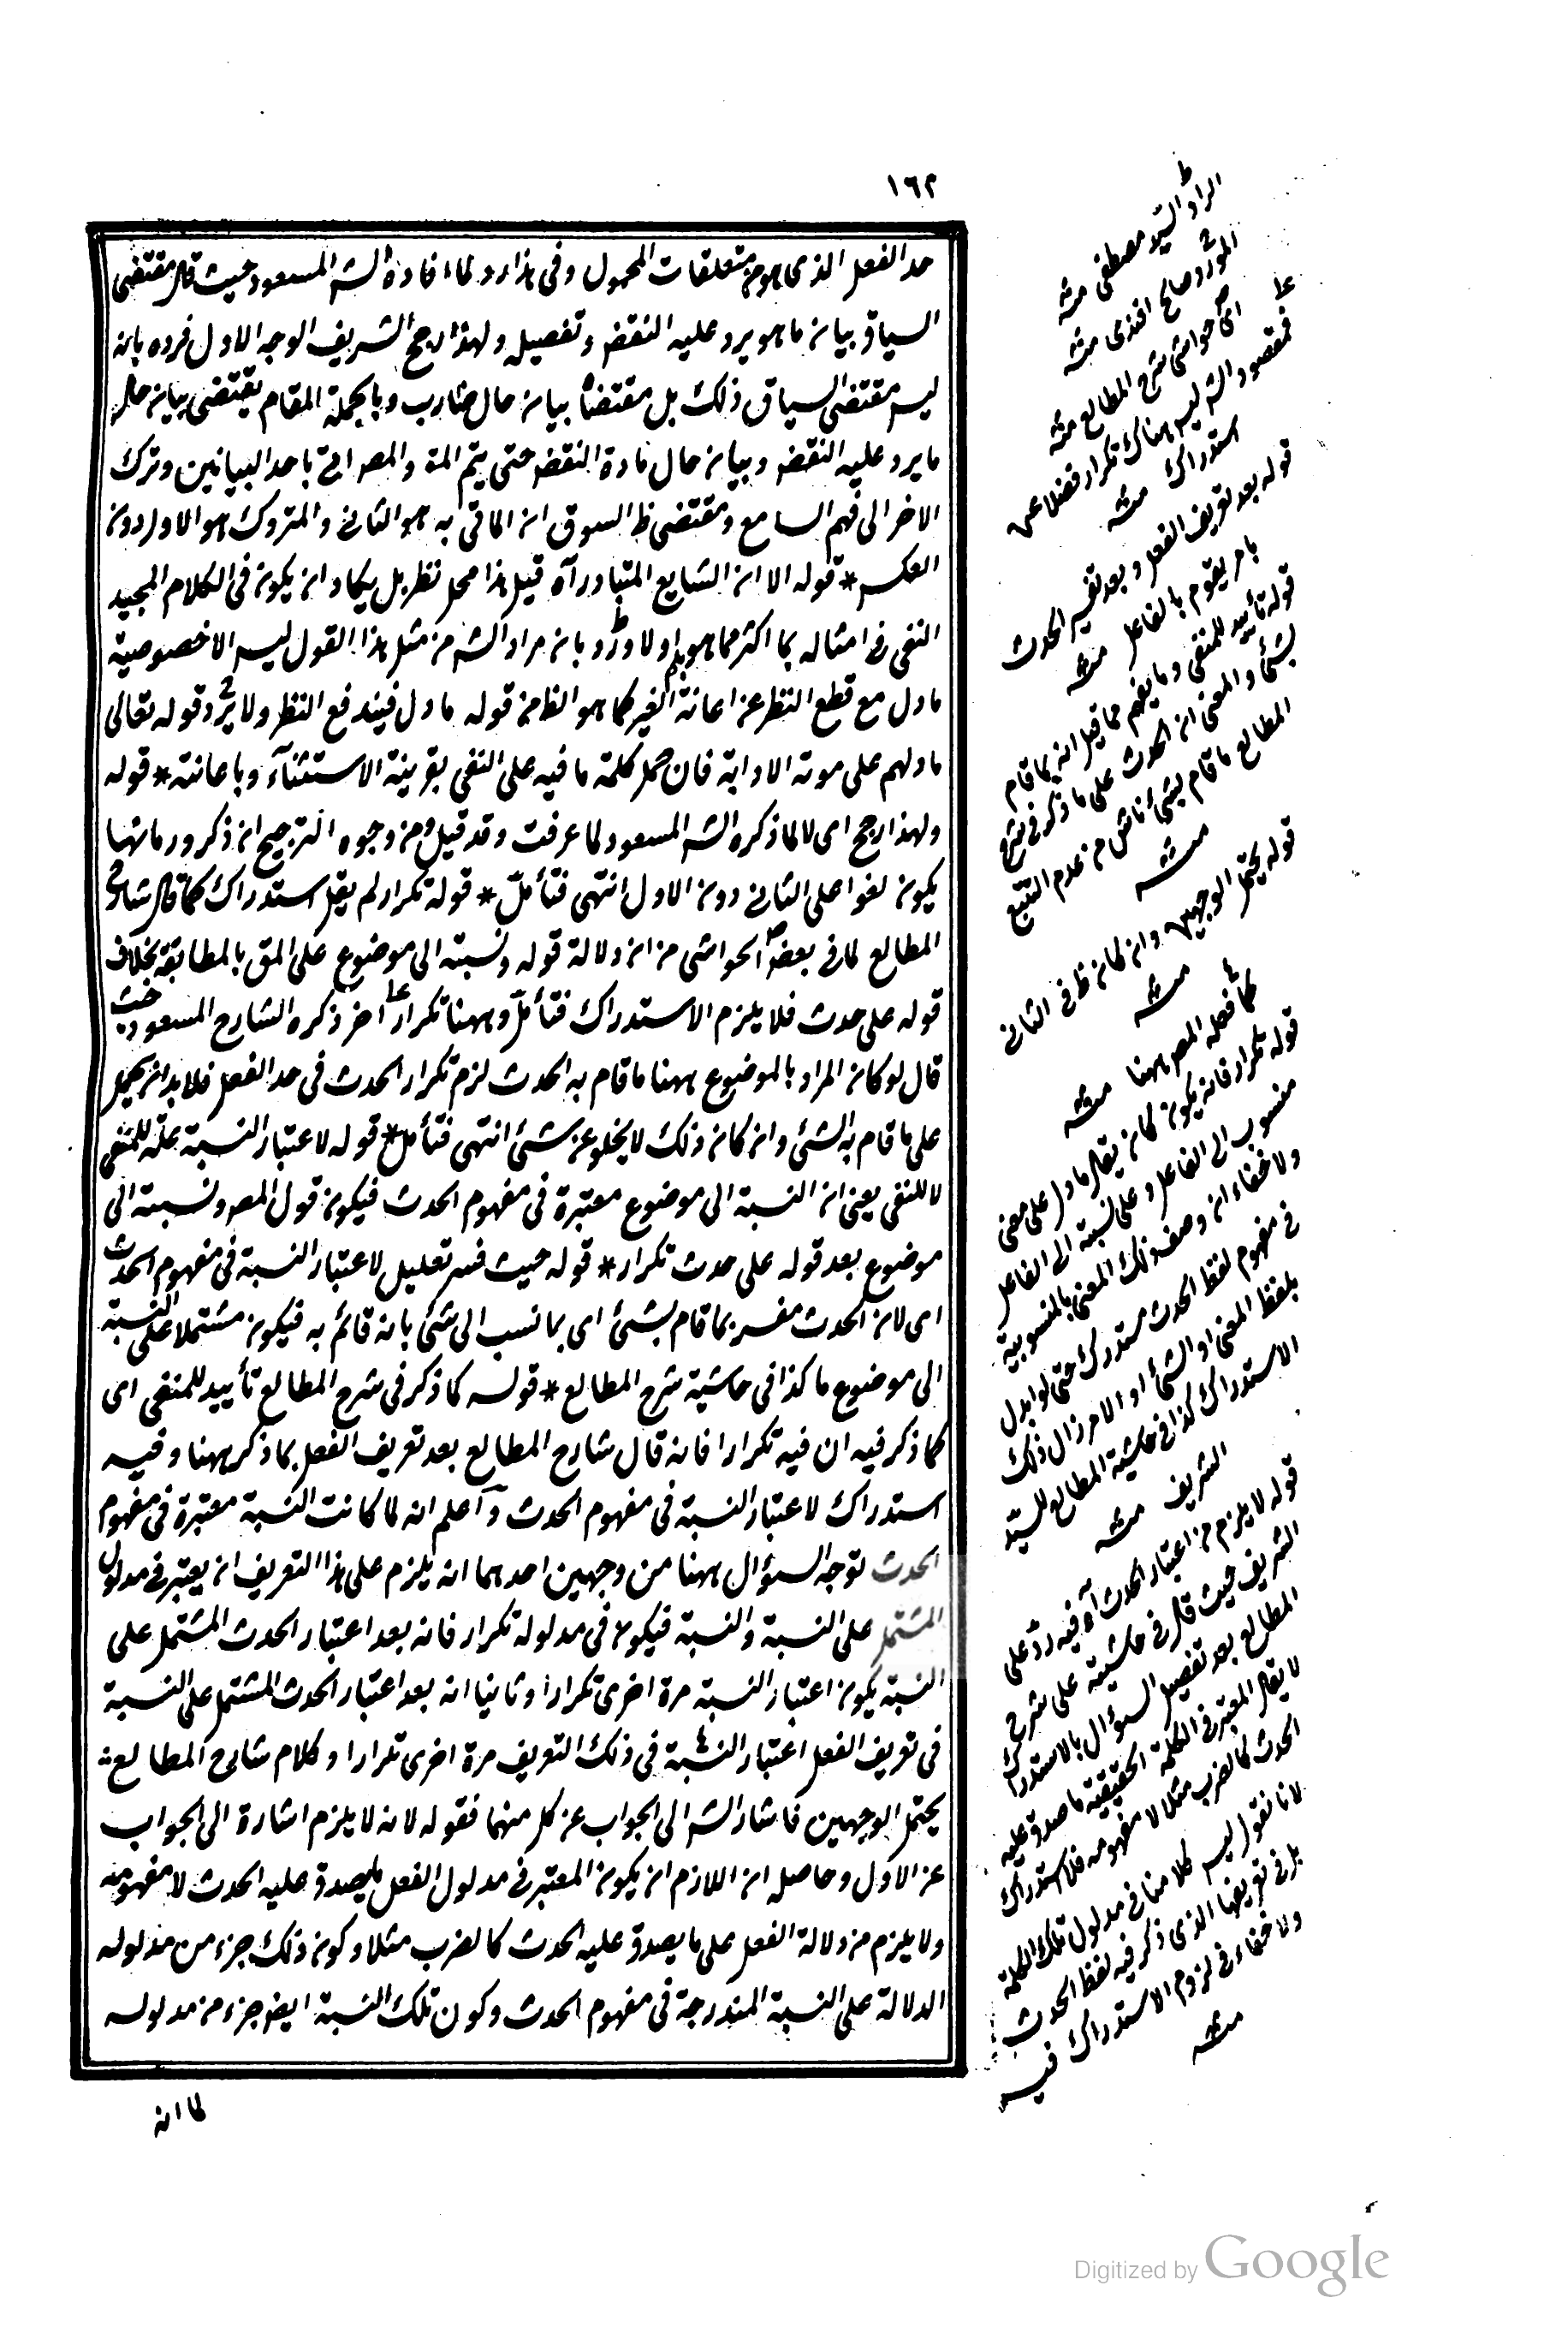 ١٦٢
حد الفعل الذى هو من متعلقات المحمول وفى هذا رد لما افاده الشه المسعود حيث قال مقتضى
السياق بيان ما هو يرد عليه النقض وتفصيله ولهذا رجح الشريف الوجه الاول فرده بانه
ليس مقتضى السياق ذلك بل مقتضاه بيان حال ضارب وبالجملة المقام يقتضى بيان حال
ما يرد عليه النقض وبيان حال مادة النقض حتى يتم المة والمصه اتى باحد البيانين وترك
الاخر الى فهم السامع ومقتضى ظ السوق ان الماتى به هو الثانى والمتروك هو الاول دون
العكس * قوله الا ان الشايع المتبادر آه قيل هذا محل نظر بل يكاد ان يكون فى الكلام المجيد
النفى فى امثاله بما اكثر مما هو بلم ولا ورد بان مراد الشه من مثل هذا القول ليس الا خصوصية
مادل مع قطع النظر عن اعانة الغير كما هو الظ من قوله مادل فيندفع النظر ولا يرد قوله تعالى
مادلهم على موته الا دابة فان حمل كلمة ما فيه على النفى بقرينة الاستثناء وباعانته * قوله
ولهذا رجح اى لا لما ذكره الشه المسعود لما عرفت وقد قيل ومن وجوه الترجيح ان ذكر ورمانها
يكون لغوا على الثانى دون الاول انتهى فتأمل * قوله تكرار لم يقل استدراك كما قال شارح
المطالع لما فى بعض الحواشى من ان دلالة قوله ونسبته الى موضوع على المق بالمطابقة بخلاف
قوله على حدث فلا يلزم الاستدراك فتأمل وههنا تكرار اخر ذكره الشارح المسعود حيث
قال لو كان المراد بالموضوع ههنا ما قام به الحدث لزم تكرار الحدث فى حد الفعل فلا بد ان يحمل
على ما قام به الشئ وان كان ذلك لا يخلو عن شئ انتهى فتأمل * قوله لاعتبار النسبة علة للمنفى
لا للنفى يعنى ان النسبة الى موضوع معتبرة فى مفهوم الحدث فيكون قول المصه ونسبته الى
موضوع بعد قوله على حدث تكرار * قوله حيث فسر تعليل لاعتبار النسبة فى مفهوم الحدث
اى لان الحدث مفسر بما قام بشئ اى بما نسب الى شئ بانه قائم به فيكون مشتملا على النسبة
الى موضوع ما كذا فى حاشية شرح المطالع * قوله كما ذكر فى شرح المطالع تأييد للمنفى اى
كما ذكر فيه ان فيه تكرارا فانه قال شارح المطالع بعد تعريف الفعل بما ذكر ههنا وفيه
استدراك لاعتبار النسبة فى مفهوم الحدث واعلم انه لما كانت النسبة معتبرة فى مفهوم
الحدث توجه السؤال ههنا من وجهين احدهما انه يلزم على هذا التعريف ان يعتبر فى مدلول
المشتمل على النسبة والنسبة فيكون فى مدلوله تكرار فانه بعد اعتبار الحدث المشتمل على
النسبة يكون اعتبار النسبة مرة اخرى تكرارا وثانيا انه بعد اعتبار الحدث المشتمل على النسبة
فى تعريف الفعل اعتبار النسبة فى ذلك التعريف مرة اخرى تكرارا وكلام شارح المطالع
يحتمل الوجهين فاشار الشه الى الجواب عن كل منهما فقوله لانه لا يلزم اشارة الى الجواب
عن الاول وحاصله ان اللازم ان يكون المعتبر فى مدلول الفعل ما يصدق عليه الحدث لا مفهومه
ولا يلزم من دلالة الفعل على ما يصدق عليه الحدث كالضرب مثلا وكون ذلك جزء من مدلوله
الدلالة على النسبة المندرجة فى مفهوم الحدث وكون تلك النسبة ايضو جزء من مدلوله
لما انه
الراد السيد مصطفى منه
المورد صالح افندى منه
اى حواشى شرح المطالع منه
فمقصود الشه ليس هناك تكرار فضلا عن
استدراك منه
قوله بعد تعريف الفعل وبعد تفسير الحدث
بامر يقوم بالفاعل منه
قوله تأييد للمنفى وما يفهم مما قيل انه بما قام
بشئ والمعنى ان الحدث على ما ذكر فى شرح
المطالع ما قام بشئ ناش من عدم التتبع
منه
قوله يحتمل الوجهين وان كان ظ فى الثانى
منه
كما فعله المصه ههنا منه
قوله تكرار فانه يكون كان يقال مادل على معنى
منسوب الى الفاعل وعلى نسبته الى الفاعل
ولا خفاء ان وصف ذلك المعنى بالمنسوبية
فى مفهوم لفظ الحدث مستدرك حتى لو ابدل
بلفظ المعنى او الشئ او الامر زال ذلك
الاستدراك كذا فى حاشية المطالع للسيد
الشريف منه
قوله لا يلزم من اعتبار الحدث آه فيه رد على
الشريف حيث قال فى حاشيته على شرح
المطالع بعد تفصيل السؤال بالاستدراك
لا يقال المعتبر فى الكلمة الحقيقية ما صدق عليه
الحدث كالضرب مثلا لا مفهومه فلا استدراك
لانا نقول ليس كلامنا فى مدلول تلك الكلمة
بل فى تعريفها الذى ذكر فيه لفظ الحدث
ولا خفاء فى لزوم الاستدراك فيه
منه
Digitized by Google